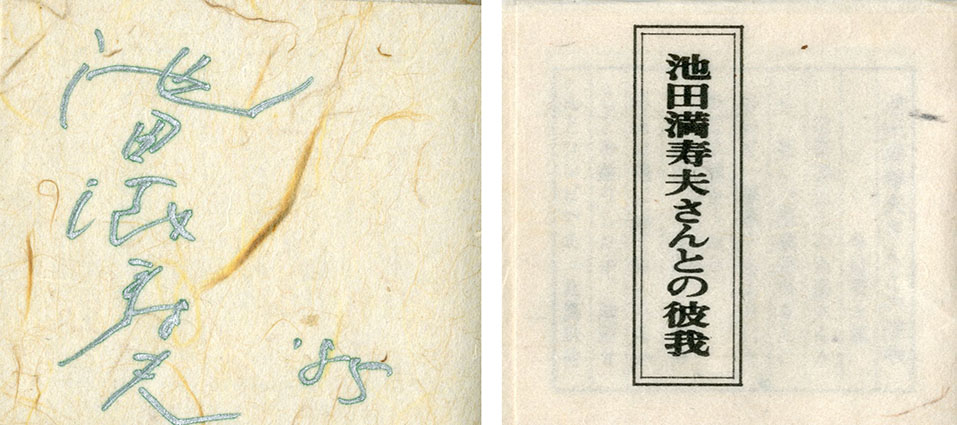 池田満寿夫
'85
池田満寿夫さんとの彼我